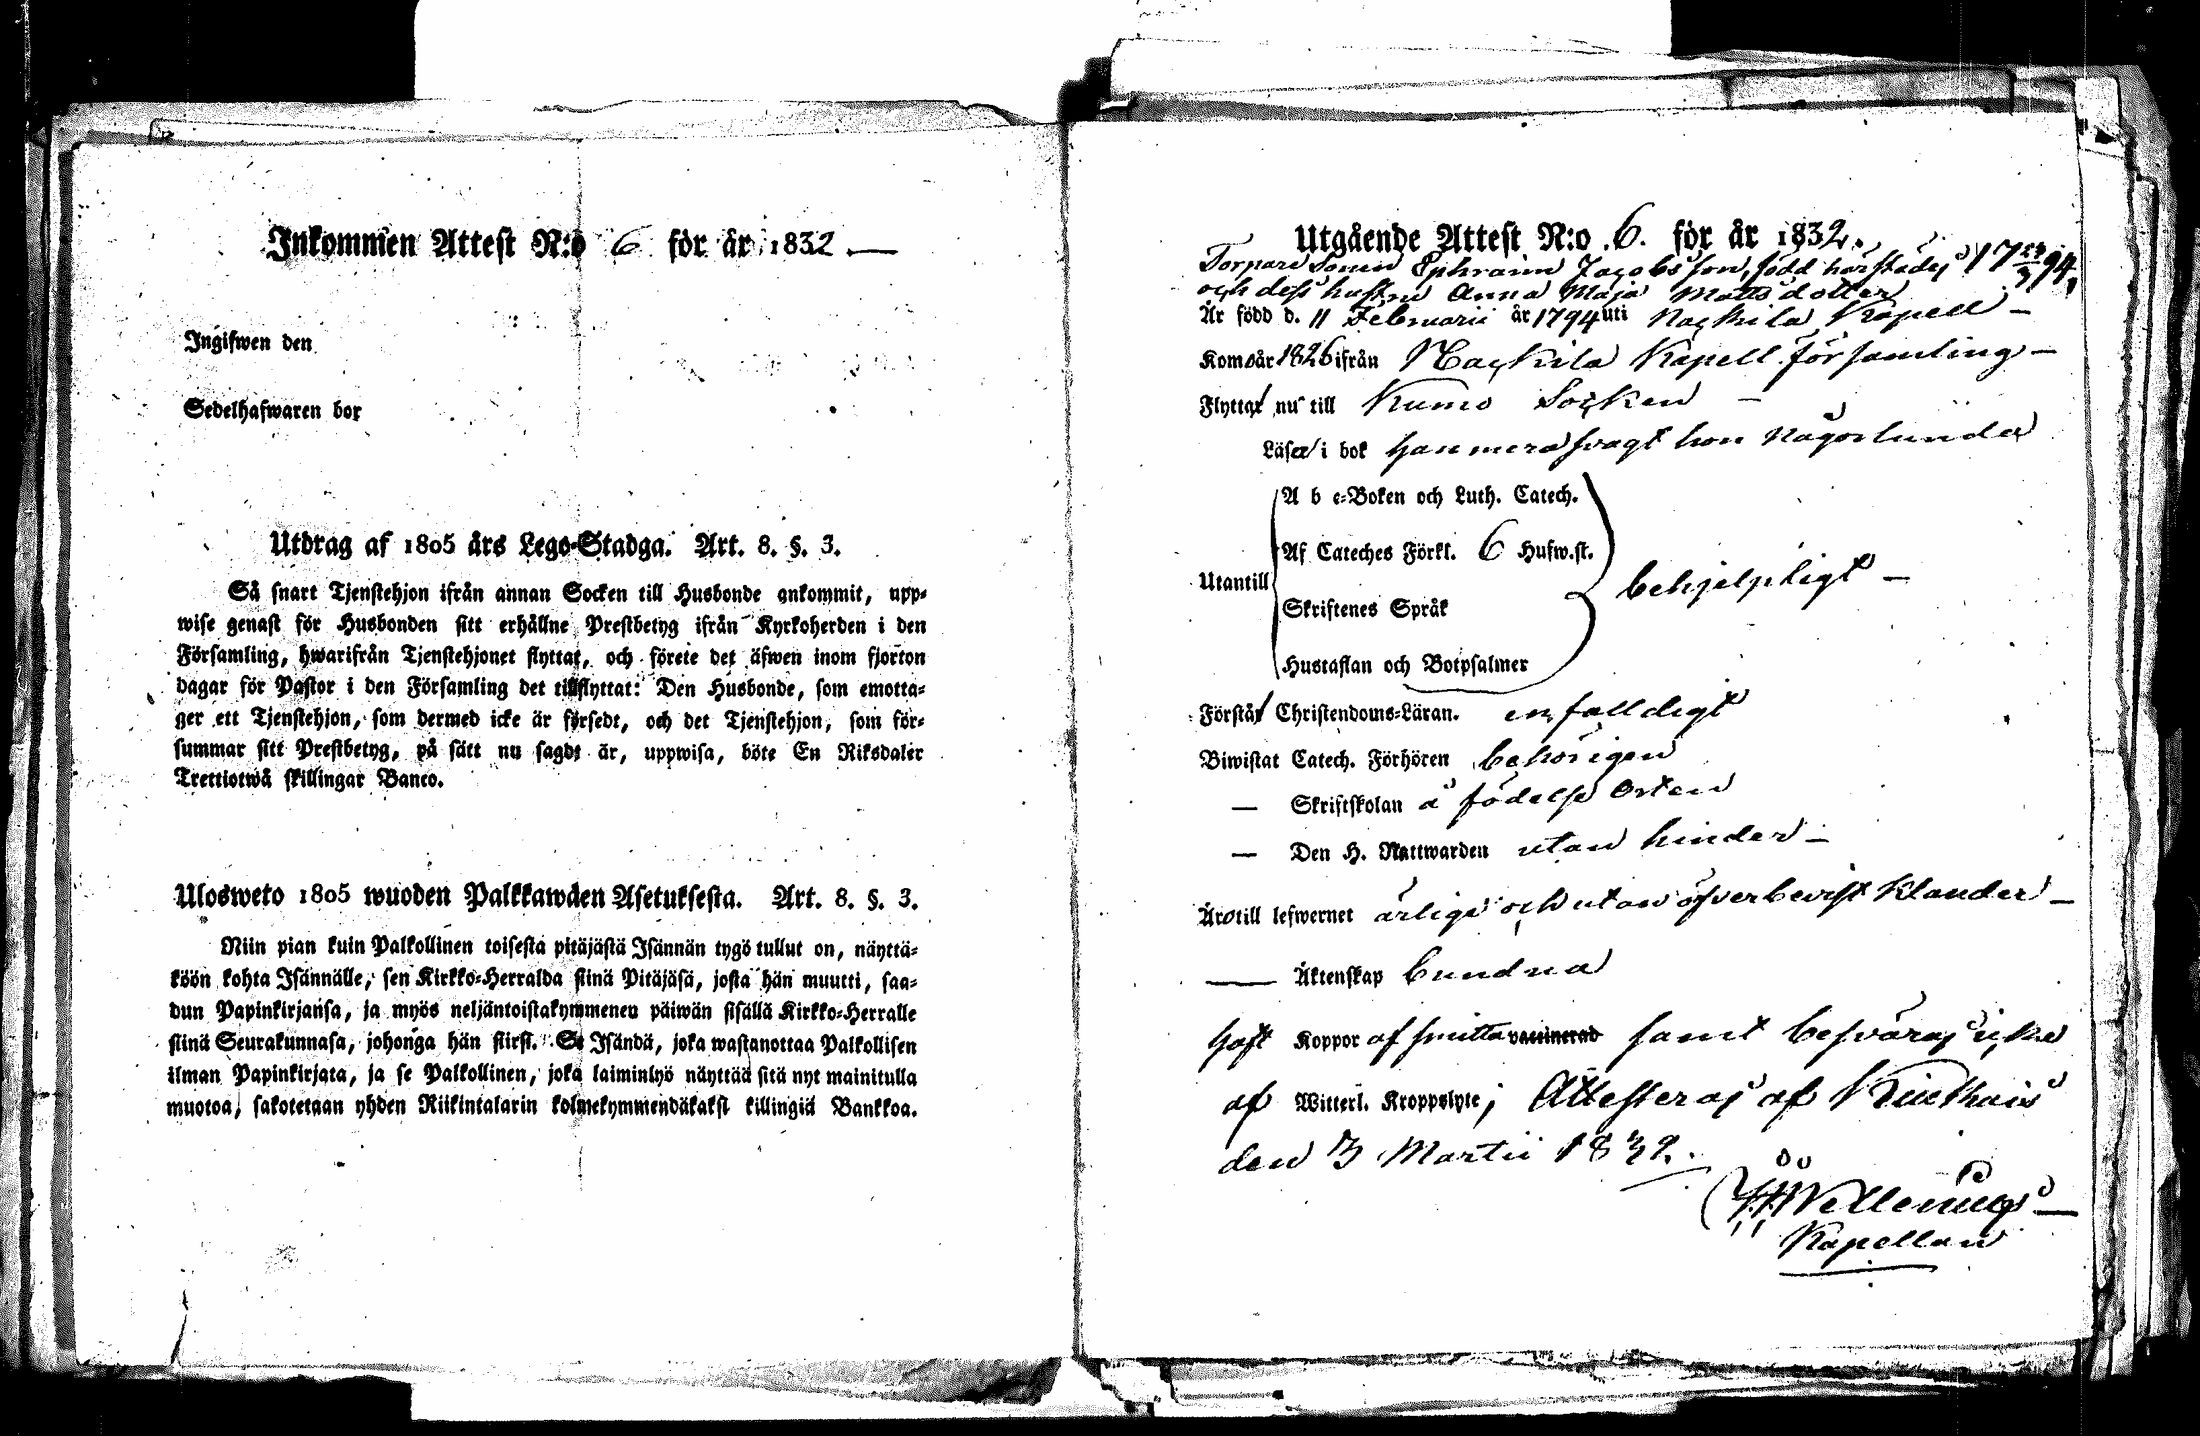 Inkommen Attest N:o 6 för år 1832.
Ingifwen den
Sedelhafwaren bor
Utdrag af 1805 års Lego-Stadga. Art. 8. §. 3.
Så snart Tjenstehjon ifrån annan Socken till Husbonde ankommit, upp-
wise genast för Husbonden sitt erhållne Prestbetyg ifrån Kyrkoherden i den
Församling, hwarifrån Tjenstehjonet flyttat, och förete det äfwen inom fjorton
dagar för Pastor i den Församling det tillflyttat: Den Husbonde, som emotta-
ger ett Tjenstehjon, som dermed icke är försedt, och det Tjenstehjon, som för-
summar sitt Prestbetyg, på sätt nu sagdt är, uppwisa, böte En Riksdaler
Trettiotwå skillingar Banco.
Ulosweto 1805 wuoden Palkkawäen Asetuksesta. Art. 8. §. 3.
Niin pian kuin Palkollinen toisesta pitäjästä Isännän tygö tullut on, näyttä-
köön kohta Isännälle, sen Kirkko-Herralda siinä Pitäjäsä, josta hän muutti, saa-
dun Papinkirjansa, ja myös neljäntoistakymmenen päiwän sisällä Kirkko-Herralle
siinä Seurakunnasa, johonga hän siirsi. Se Isändä, joka wastanottaa Palkollisen
ilman Papinkirjata, ja se Palkollinen, joka laiminlyö näyttää sitä nyt mainitulla
muotoa, sakotetaan yhden Riikintalarin kolmekymmendäkaksi killingiä Bankkoa.
Utgående Attest N:o 6. för år 1832.
Torpare Sonen Ephraim Jacobsson, född härstädes 17 23/3 94,
och dess hustru Anna Maja Mattsdotter
Är född d. 11 Februarii år 1794 uti Nackila Kapell
Komo år 1826 ifrån Nackila Kapell församling
Flytta nu till Kumo Socken
Läser i bok han mera svagt hon någorlunda
A b c-Boken och Luth. Catech.
Af Cateches Förkl. 6 Hufw.st.
Utantill behjelpligt
Skriftenes Språk
Hustaflan och Botpsalmer
Förstå Christendoms-Läran. enfalldigt
Biwistat Catech. Förhören behörigen
— Skriftskolan å födelse Orten
— Den H. Nattwarden utan hinder
Äro till lefwernet ärliga och utan öfverbevist klander
— Äktenskap bundna
haft Koppor af smitta vaccinerad samt besväras icke
af Witterl. Kroppslyte; Attesteras af Kiuthais
den 3 Martii 1832.
Kapellan